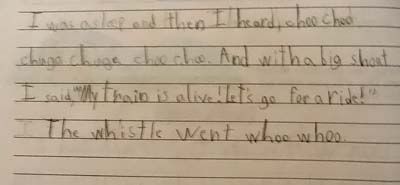 I was asleep and then I heard, choo choo
chuga chuga choo choo. And with a big shout
I said, "My train is alive! Let's go for a ride!"
The whistle went whoo whoo.